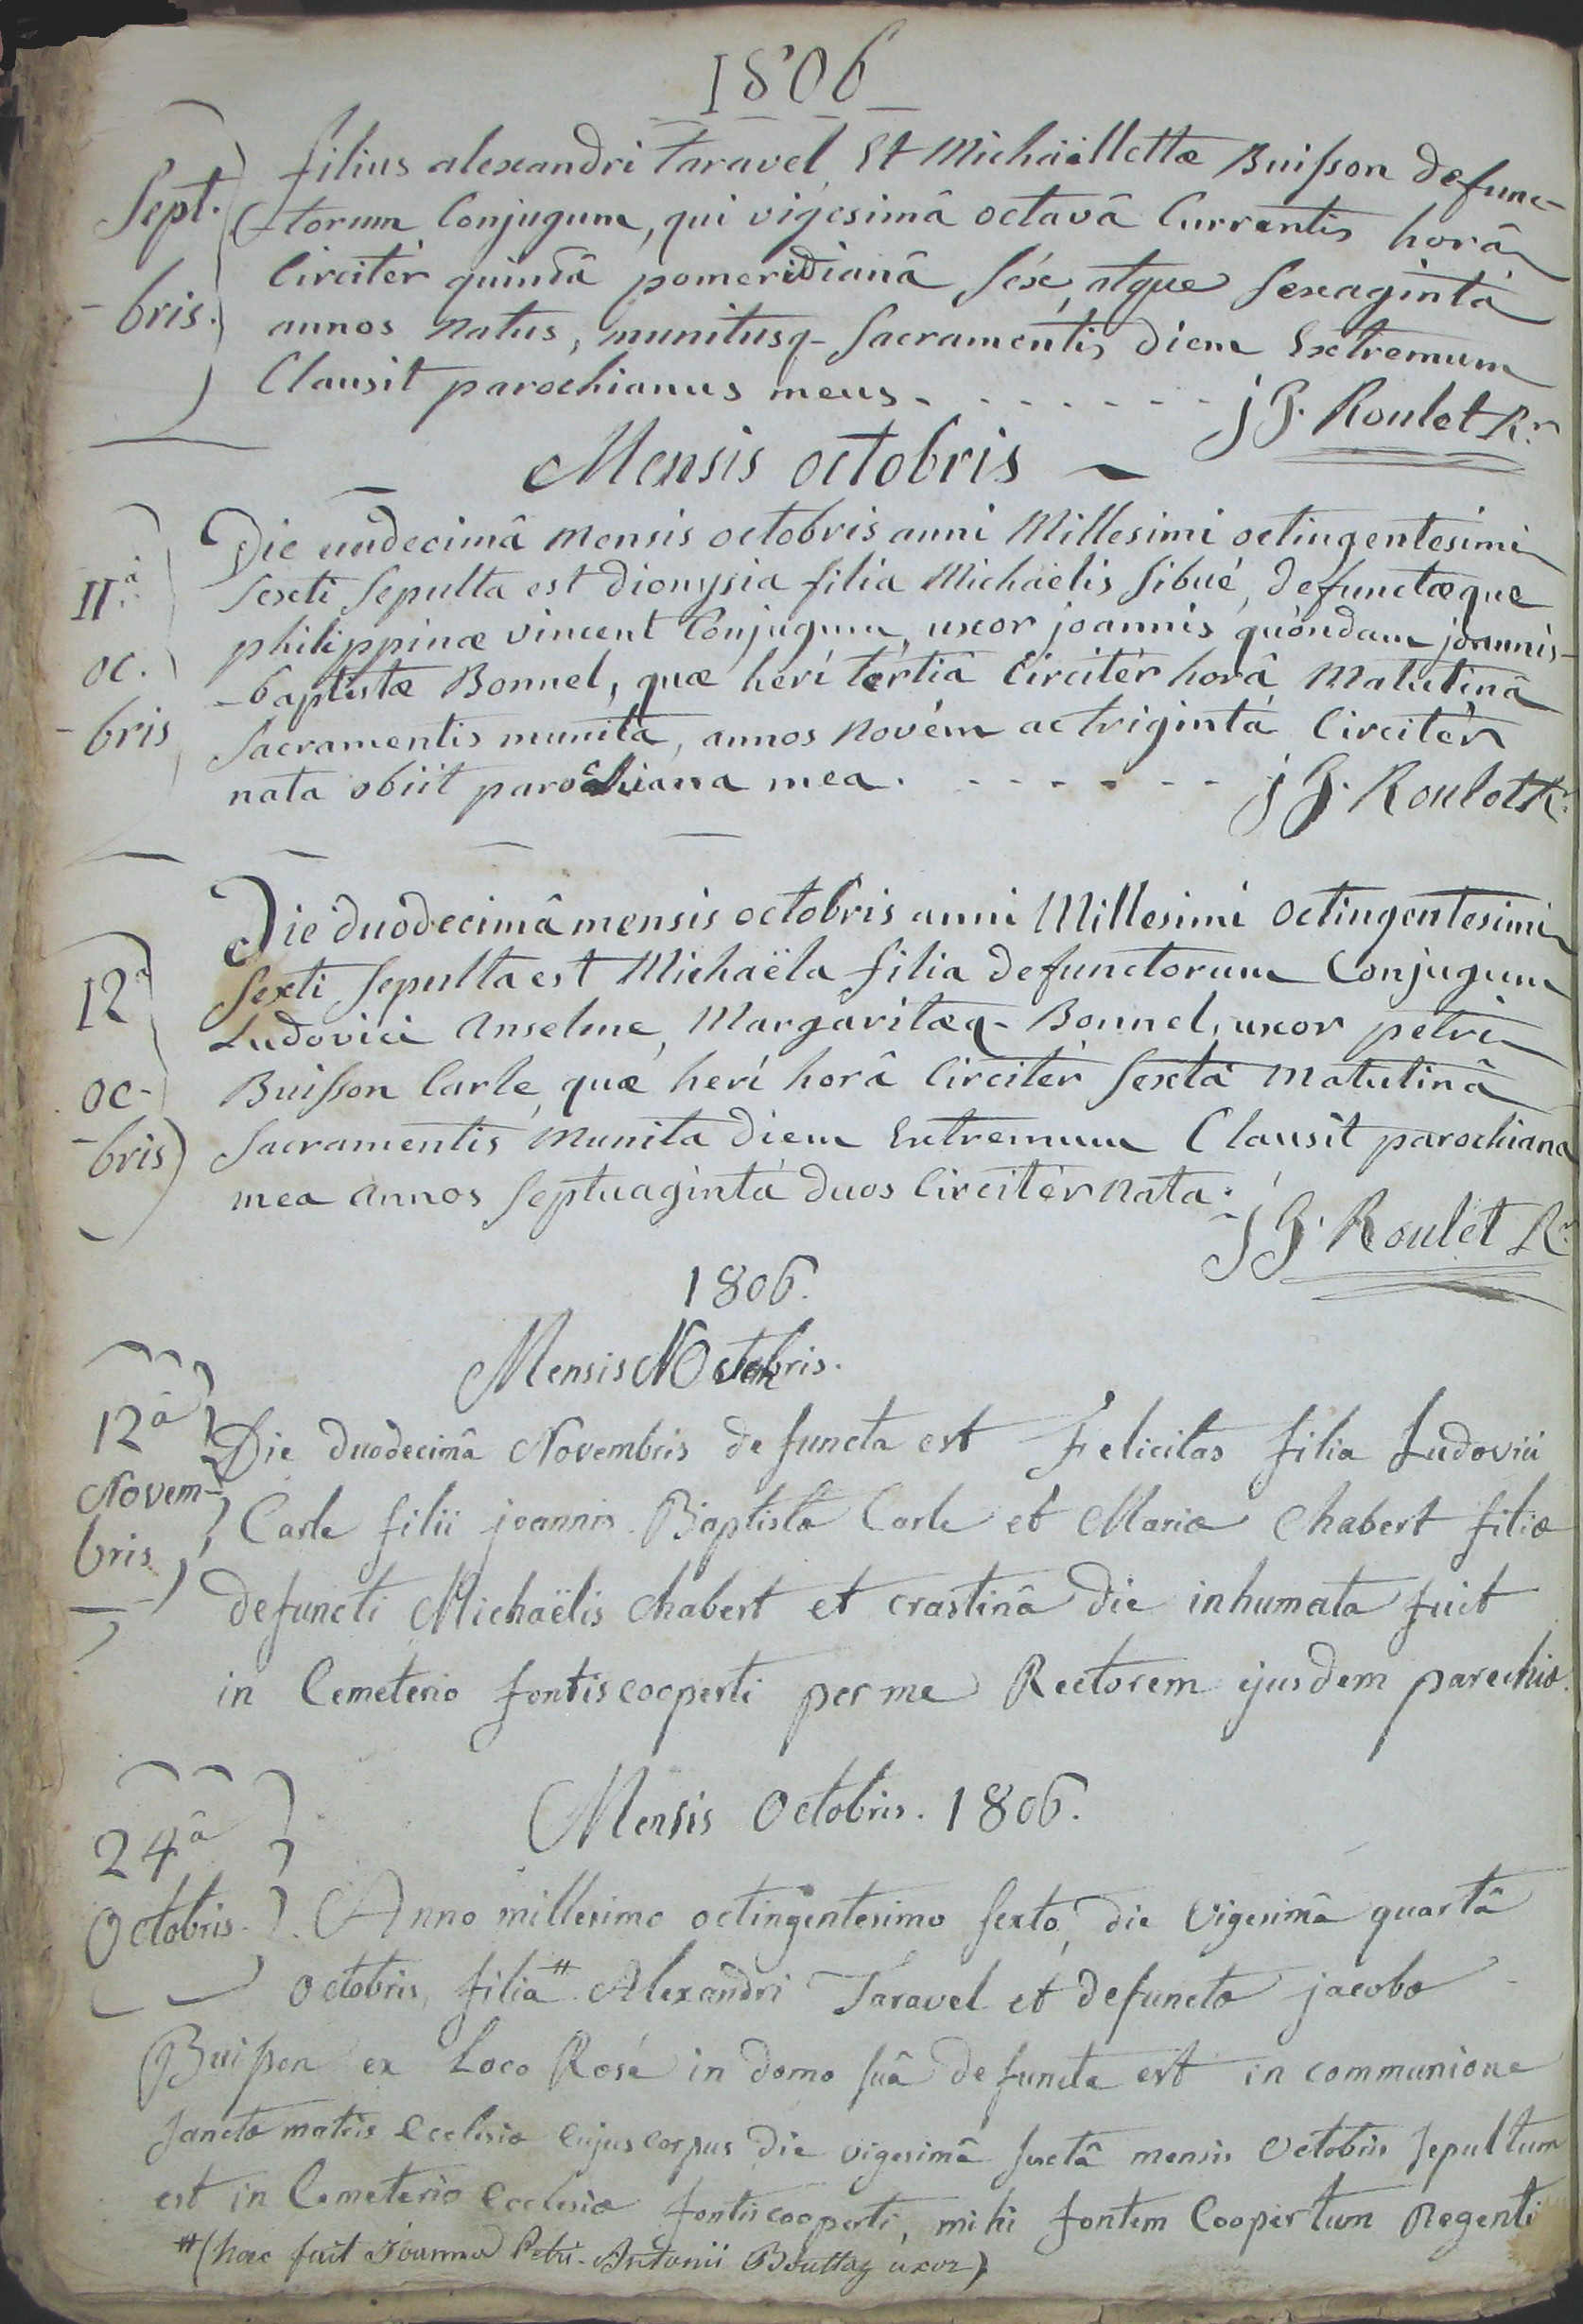 1806
Sept.
- bris.
filius alexandri Taravel, Et Michäellettæ Buisson defunc-
-torum Conjugum, qui vigesimâ octavâ Currentis horâ
Circitèr quintâ pomeridianâ séx, atque sexagintà
annos natus, munitusq- Sacramentis diem Extremum
Clausit parochianus meus- - - - - - - -
j G. Roulet Rr.
Mensis octobris
IIâ.
oc.
- bris
Die undecimâ mensis octobris anni Millesimi octingentesimi
sexti sepulta est dionysia filia Michäelis Sibué, defunctæque
philippinæ vincent Conjugum, uxor joannis quòndam joannis-
-baptistæ Bonnel, quæ herí tértiâ Circitèr horâ Matutinâ
Sacramentis munita, annos novém ac trigintà Circitèr
nata obiit parochiana mea. - - - - - - -
j G. Roulet Rr.
12a
oc-
-bris
Die duodecimâ mensis octobris anni Millesimi octingentesimi
sexti sepulta est Michaëla filia defunctorum Conjugum
Ludovici Anselme, Margaritæq- Bonnel, uxor petri
Buisson Carle, quæ herí horâ Circitèr sextâ matutinâ
Sacramentis munita diem Extremum Clausit parochiana
mea annos septuagintà duos Circitèr nata.
j G. Roulet Rr.
1806.
Mensis Novembris.
12â
Novem-
bris
Die duodecimâ Novembris defuncta est Felicitas filia Ludovici
Carle filii joannis Baptistæ Carle et Mariæ Chabert filiæ
defuncti Michaëlis Chabert et crastinâ die inhumata fuit
in Cemeterio fontiscooperti per me Rectorem ejusdem parochiæ.
Mensis Octobris. 1806.
24â
Octobris.
Anno millesimo octingentesimo sexto, die vigesimâ quartâ
octobris, filia # Alexandri Taravel et defunctæ jacobæ
Buisson ex Loco Rosé in domo suâ defuncta est in communione
sanctæ matris Ecclesiæ cujus corpus die vigesimâ sextâ mensis Octobris sepultum
est in Cemeterio Ecclesiæ fontiscooperti, mihi fontem Coopertum Regenti
# (hæc fuit Joanna Petri-Antonii Bouttaz uxor)